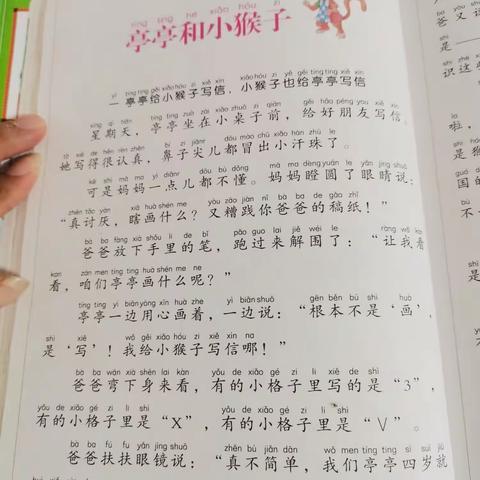 tíng tíng hé xiǎo hóu zi
亭亭和小猴子
yī tíng tíng gěi xiǎo hóu zi xiě xìn xiǎo hóu zi yě gěi tíng tíng xiě xìn
一 亭亭给小猴子写信，小猴子也给亭亭写信
xīng qī tiān tíng tíng zuò zài xiǎo zhuō zi qián gěi hǎo péng you xiě xìn
星期天，亭亭坐在小桌子前，给好朋友写信。
tā xiě de hěn rèn zhēn bí zi jiānr dōu mào chū xiǎo hàn zhū le
她写得很认真，鼻子尖儿都冒出小汗珠了。
kě shì mā ma yì diǎnr dōu bù dǒng mā ma dèng yuán le yǎn jing shuō
可是妈妈一点儿都不懂。妈妈瞪圆了眼睛说：
zhēn tǎo yàn xiā huà shén me yòu zāo jiàn nǐ bà ba de gǎo zhǐ
“真讨厌，瞎画什么？又糟践你爸爸的稿纸！”
bà ba fàng xià shǒu li de bǐ pǎo guo lai jiě wéi le ràng wǒ kàn
爸爸放下手里的笔，跑过来解围了：“让我看
kan zán men tíng tíng huà shén me ne
看，咱们亭亭画什么呢？”
tíng tíng yì biān yòng xīn huà zhe yì biān shuō gēn běn bú shì huà
亭亭一边用心画着，一边说：“根本不是‘画’，
shì xiě wǒ gěi xiǎo hóu zi xiě xìn na
是‘写’！我给小猴子写信哪！”
bà ba wān xià shēn lai kàn yǒu de xiǎo gé zi li xiě de shì
爸爸弯下身来看，有的小格子里写的是“3”，
yǒu de xiǎo gé zi li shì yǒu de xiǎo gé zi li shì
有的小格子里是“X”，有的小格子里是“V”。
bà ba fú fu yǎn jìng shuō zhēn bù jiǎn dān wǒ men tíng tíng sì suì jiù
爸爸扶扶眼镜说：“真不简单，我们亭亭四岁就
爸又说
是
识这些
啦，
是猴
国的
不